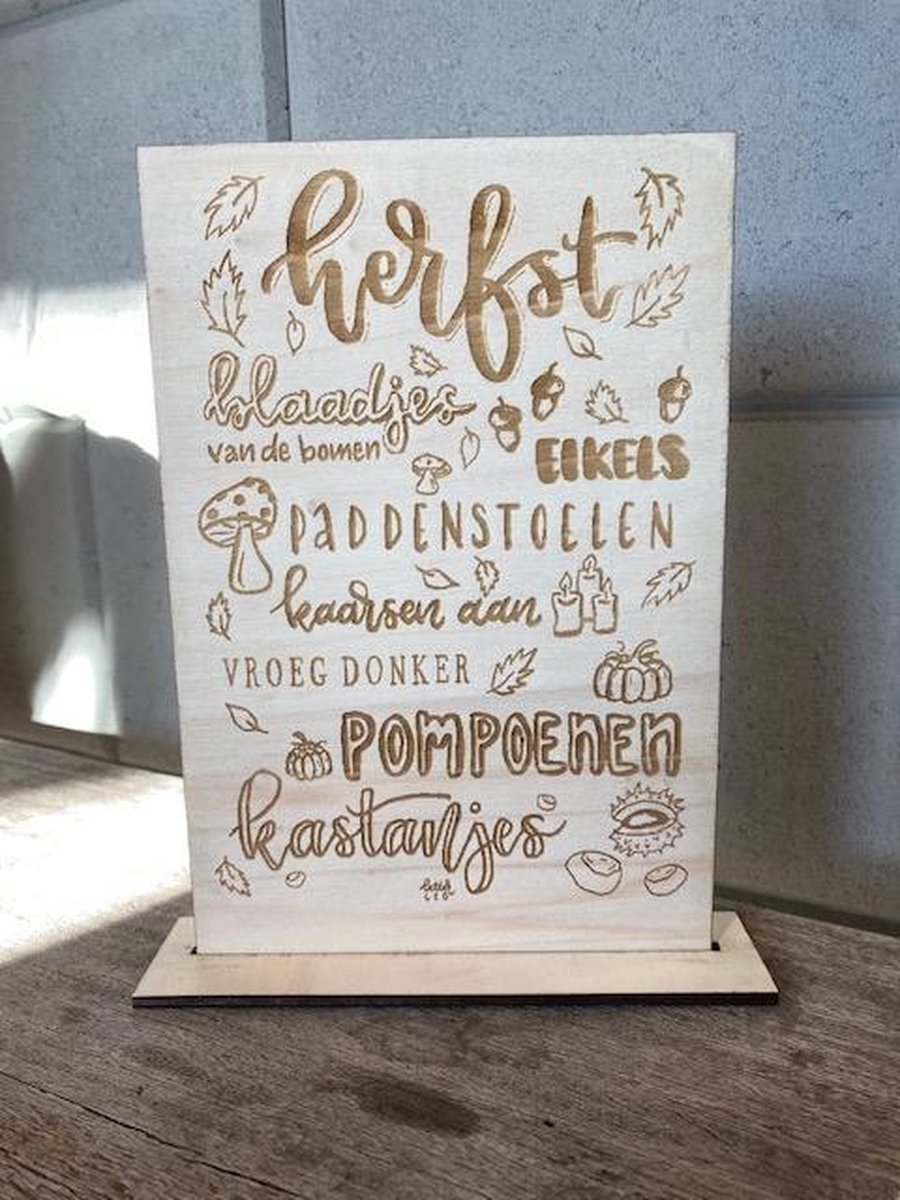 herfst
blaadjes
van de bomen
EIKELS
PADDENSTOELEN
kaarsen aan
VROEG DONKER
POMPOENEN
kastanjes